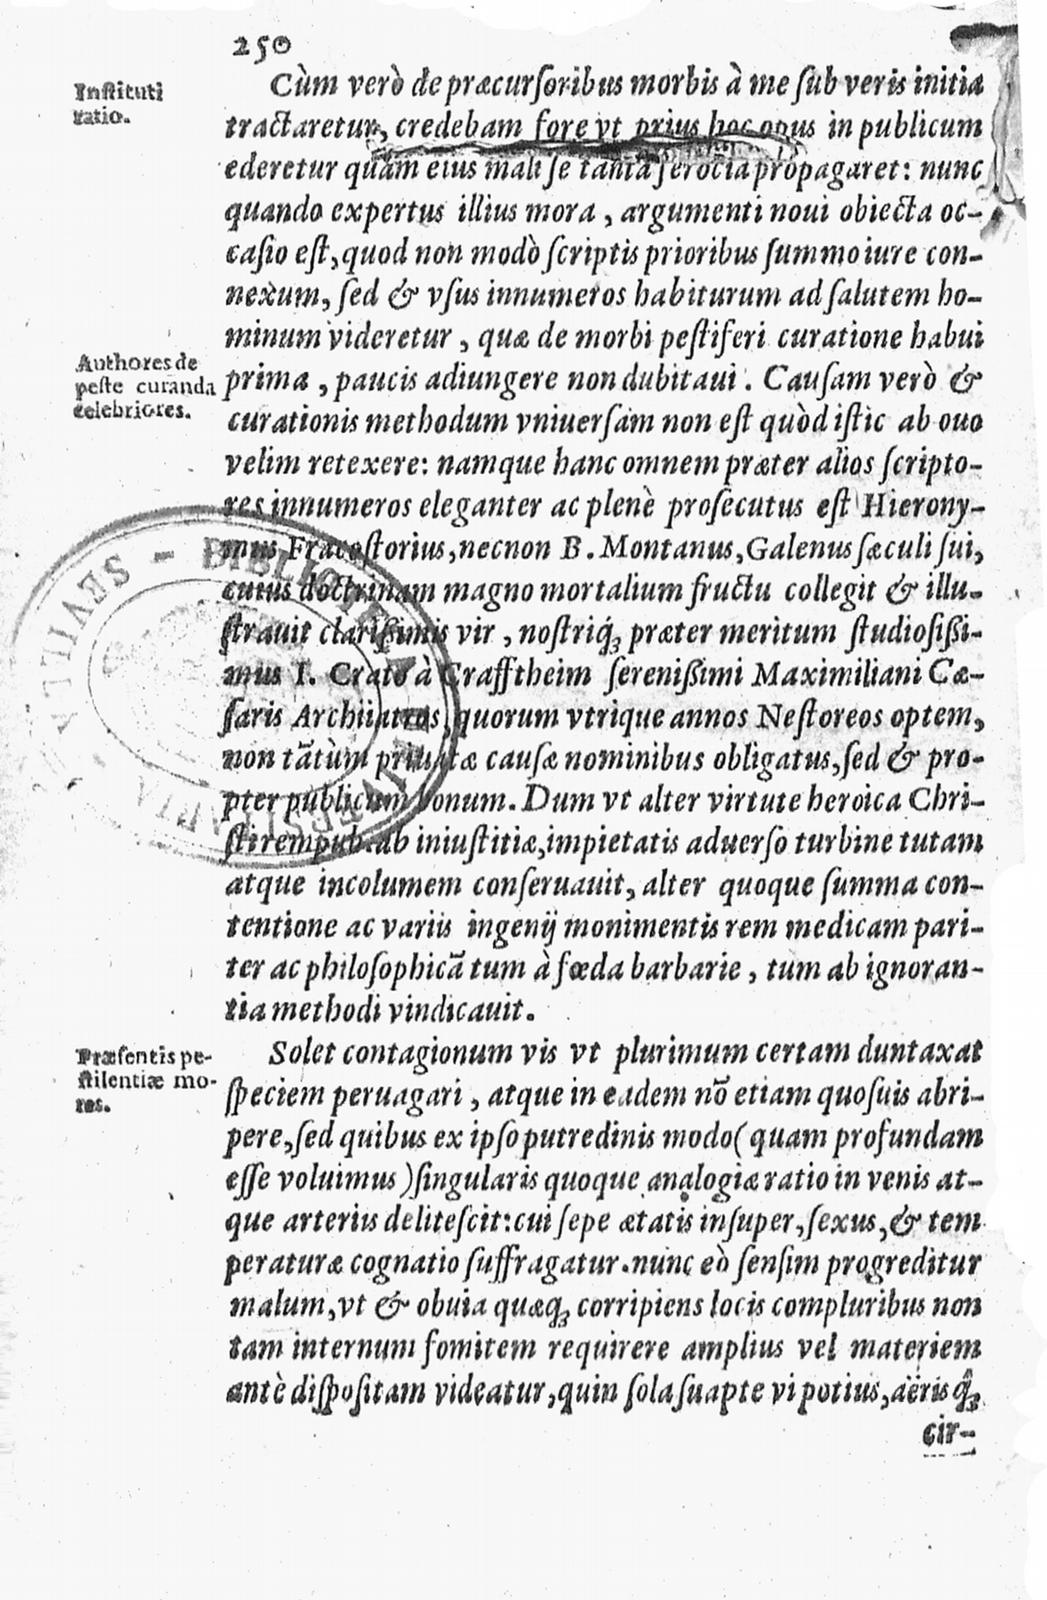 250
Instituti
ratio.
Cùm verò de præcurſoribus morbis à me ſub veris initia
tractaretur, credebam fore vt prius hoc opus in publicum
ederetur quàm eius mali ſe tanta ferocia propagaret: nunc
quando expertus illius mora, argumenti noui obiecta oc-
caſio eſt, quod non modò ſcriptis prioribus ſummo iure con-
nexum, ſed & vſus innumeros habiturum ad ſalutem ho-
minum videretur, quæ de morbi peſtiferi curatione habui
Authores de
peste curanda
celebriores.
prima, paucis adiungere non dubitaui. Cauſam verò &
curationis methodum vniuerſam non eſt quòd iſtic ab ouo
velim retexere: namque hanc omnem præter alios ſcripto-
res innumeros eleganter ac plenè proſecutus eſt Hierony-
mus Fracaſtorius, necnon B. Montanus, Galenus ſæculi ſui,
cuius doctrinam magno mortalium fructu collegit & illu-
ſtrauit clariſſimus vir, noſtriq́ꝫ præter meritum ſtudioſiſſi-
mus I. Crato à Crafftheim ſereniſſimi Maximiliani Cæ-
ſaris Archiiatros, quorum vtrique annos Neſtoreos optem,
non tātùm priuatæ cauſæ nominibus obligatus, ſed & pro-
pter publicum bonum. Dum vt alter virtute heroica Chri-
ſti rempub. ab iniuſtitiæ, impietatis aduerſo turbine tutam
atque incolumem conſeruauit, alter quoque ſumma con-
tentione ac variis ingenij monimentis rem medicam pari-
ter ac philoſophicā tum à fœda barbarie, tum ab ignoran-
tia methodi vindicauit.
Præſentis pe-
ſtilentiæ mo-
res.
Solet contagionum vis vt plurimum certam duntaxat
ſpeciem peruagari, atque in eadem nō etiam quoſuis abri-
pere, ſed quibus ex ipſo putredinis modo (quam profundam
eſſe voluimus) ſingularis quoque analogiæ ratio in venis at-
que arteriis deliteſcit: cui ſepe ætatis inſuper, ſexus, & tem
peraturæ cognatio ſuffragatur. nunc eò ſenſim progreditur
malum, vt & obuia quæqꝫ corripiens locis compluribus non
tam internum fomitem requirere amplius vel materiem
antè diſpoſitam videatur, quin ſola ſuapte vi potius, aëris q́ꝫ
cir-
BIBLIOTECA UNIVERSITARIA - SEVILLA -